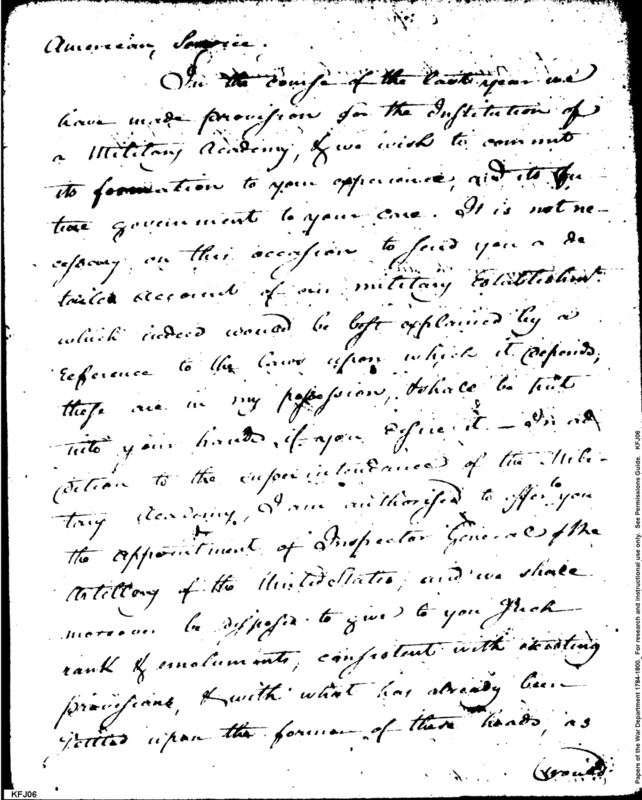 American, Service.
In the course of the last year we
have made provision for the Institution of
a Military Academy, & we wish to commit
its formation to your experience, and its fu-
ture government to your care. It is not ne-
cessary on this occasion to send you a de
tailed account of our military Establishmt.
which indeed would be best explained by a
reference to the laws upon which it depends,
these are in my possession, & shall be put
into your hands, if you desire it — In ad
dition to the superintendance of the Mili-
tary Academy, I am authorised to offer to you
the appointment of Inspector General of the
Artillery of the United States, and we shall
moreover be disposed to give to you such
rank & emoluments, consistent with existing
provisions, & with what has already been
settled upon the former of these heads, as
would
KFJ06
Papers of the War Department 1784-1800_ For research and instructional use only. See Permissions Guide. KFJ06